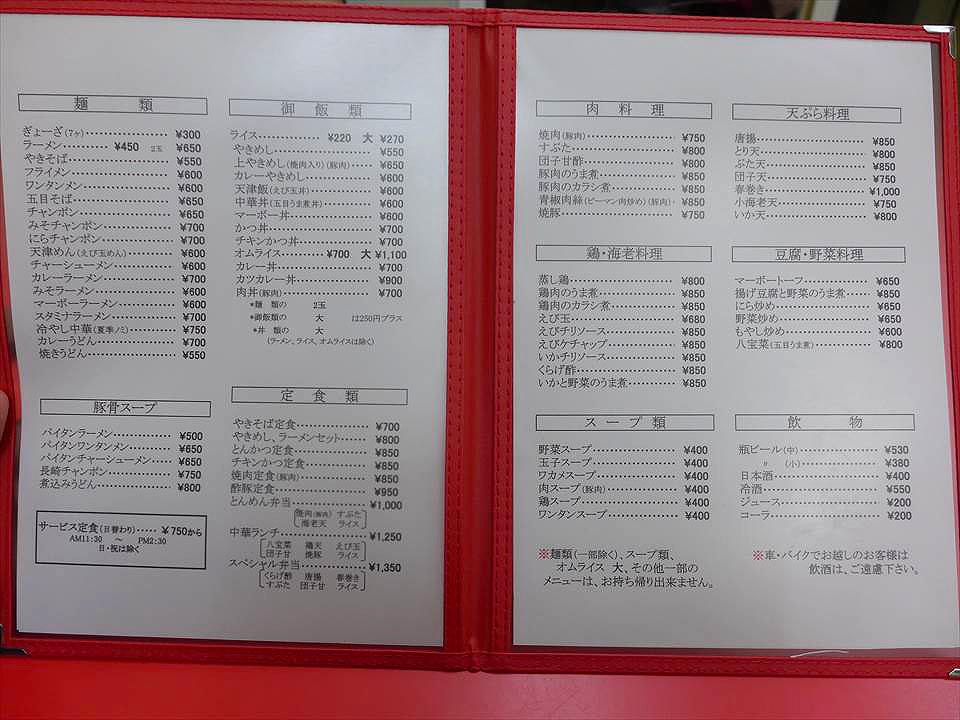 麺 類
ぎょーざ(7ヶ)‥‥‥‥‥‥ ¥300
ラーメン‥‥‥‥ ¥450 2玉 ¥650
やきそば‥‥‥‥‥‥ ¥550
フライメン‥‥‥‥‥‥ ¥600
ワンタンメン‥‥‥‥‥‥ ¥600
五目そば‥‥‥‥‥‥ ¥650
チャンポン‥‥‥‥‥‥ ¥650
みそチャンポン‥‥‥‥‥‥ ¥700
にらチャンポン‥‥‥‥‥‥ ¥700
天津めん(えび玉めん)‥‥‥‥ ¥600
チャーシューメン‥‥‥‥‥‥ ¥600
カレーラーメン‥‥‥‥‥‥ ¥700
みそラーメン‥‥‥‥‥‥ ¥600
マーボーラーメン‥‥‥‥‥‥ ¥600
スタミナラーメン‥‥‥‥‥‥ ¥700
冷やし中華(夏季ノミ)‥‥‥‥ ¥750
カレーうどん‥‥‥‥‥‥ ¥700
焼きうどん‥‥‥‥‥‥ ¥550
豚骨スープ
パイタンラーメン‥‥‥‥‥‥ ¥500
パイタンワンタンメン‥‥‥‥ ¥650
パイタンチャーシューメン‥‥‥ ¥650
長崎チャンポン‥‥‥‥‥‥ ¥750
煮込みうどん‥‥‥‥‥‥ ¥800
サービス定食(日替わり)‥‥‥ ¥750から
AM11:30 ～ PM2:30
日・祝は除く
御 飯 類
ライス‥‥‥‥‥‥ ¥220 大 ¥270
やきめし‥‥‥‥‥‥ ¥550
上やきめし(焼肉入り)(豚肉)‥‥ ¥650
カレーやきめし‥‥‥‥‥‥ ¥600
天津飯(えび玉丼)‥‥‥‥‥‥ ¥600
中華丼(五目うま煮丼)‥‥‥‥ ¥600
マーボー丼‥‥‥‥‥‥ ¥600
かつ丼‥‥‥‥‥‥ ¥700
チキンかつ丼‥‥‥‥‥‥ ¥700
オムライス‥‥‥‥‥‥ ¥700 大 ¥1,100
カレー丼‥‥‥‥‥‥ ¥700
カツカレー丼‥‥‥‥‥‥ ¥900
肉丼(豚肉)‥‥‥‥‥‥ ¥700
*麺 類の 2玉
*御飯類の 大 は250円プラス
*丼 類の 大
(ラーメン、ライス、オムライスは除く)
定 食 類
やきそば定食‥‥‥‥‥‥ ¥700
やきめし、ラーメンセット‥‥‥‥ ¥800
とんかつ定食‥‥‥‥‥‥ ¥850
チキンかつ定食‥‥‥‥‥‥ ¥850
焼肉定食(豚肉)‥‥‥‥‥‥ ¥850
酢豚定食‥‥‥‥‥‥ ¥950
とんめん弁当‥‥‥‥‥‥ ¥1,000
焼肉(豚肉) すぶた
海老天 ライス
中華ランチ‥‥‥‥‥‥ ¥1,250
八宝菜 鶏天 えび玉
団子甘 焼豚 ライス
スペシャル弁当‥‥‥‥‥‥ ¥1,350
くらげ酢 唐揚 春巻き
すぶた 団子甘 ライス
肉 料 理
焼肉(豚肉)‥‥‥‥‥‥ ¥750
すぶた‥‥‥‥‥‥ ¥800
団子甘酢‥‥‥‥‥‥ ¥800
豚肉のうま煮‥‥‥‥‥‥ ¥850
豚肉のカラシ煮‥‥‥‥‥‥ ¥850
青椒肉絲(ピーマン肉炒め)(豚肉)‥ ¥850
焼豚‥‥‥‥‥‥ ¥750
鶏・海老料理
蒸し鶏‥‥‥‥‥‥ ¥800
鶏肉のうま煮‥‥‥‥‥‥ ¥850
鶏肉のカラシ煮‥‥‥‥‥‥ ¥850
えび玉‥‥‥‥‥‥ ¥680
えびチリソース‥‥‥‥‥‥ ¥850
えびケチャップ‥‥‥‥‥‥ ¥850
いかチリソース‥‥‥‥‥‥ ¥850
くらげ酢‥‥‥‥‥‥ ¥850
いかと野菜のうま煮‥‥‥‥‥‥ ¥850
スープ 類
野菜スープ‥‥‥‥‥‥ ¥400
玉子スープ‥‥‥‥‥‥ ¥400
ワカメスープ‥‥‥‥‥‥ ¥400
肉スープ(豚肉)‥‥‥‥‥‥ ¥400
鶏スープ‥‥‥‥‥‥ ¥400
ワンタンスープ‥‥‥‥‥‥ ¥400
※麺類(一部除く)、スープ類、
オムライス 大、その他一部の
メニューは、お持ち帰り出来ません。
天ぷら料理
唐揚‥‥‥‥‥‥ ¥850
とり天‥‥‥‥‥‥ ¥800
ぶた天‥‥‥‥‥‥ ¥850
団子天‥‥‥‥‥‥ ¥750
春巻き‥‥‥‥‥‥ ¥1,000
小海老天‥‥‥‥‥‥ ¥750
いか天‥‥‥‥‥‥ ¥800
豆腐・野菜料理
マーボートーフ‥‥‥‥‥‥ ¥650
揚げ豆腐と野菜のうま煮‥‥‥ ¥850
にら炒め‥‥‥‥‥‥ ¥650
野菜炒め‥‥‥‥‥‥ ¥650
もやし炒め‥‥‥‥‥‥ ¥600
八宝菜(五目うま煮)‥‥‥‥‥‥ ¥800
飲 物
瓶ビール(中)‥‥‥‥‥‥ ¥530
〃 (小)‥‥‥‥‥‥ ¥380
日本酒‥‥‥‥‥‥ ¥400
冷酒‥‥‥‥‥‥ ¥550
ジュース‥‥‥‥‥‥ ¥200
コーラ‥‥‥‥‥‥ ¥200
※車・バイクでお越しのお客様は
飲酒は、ご遠慮下さい。